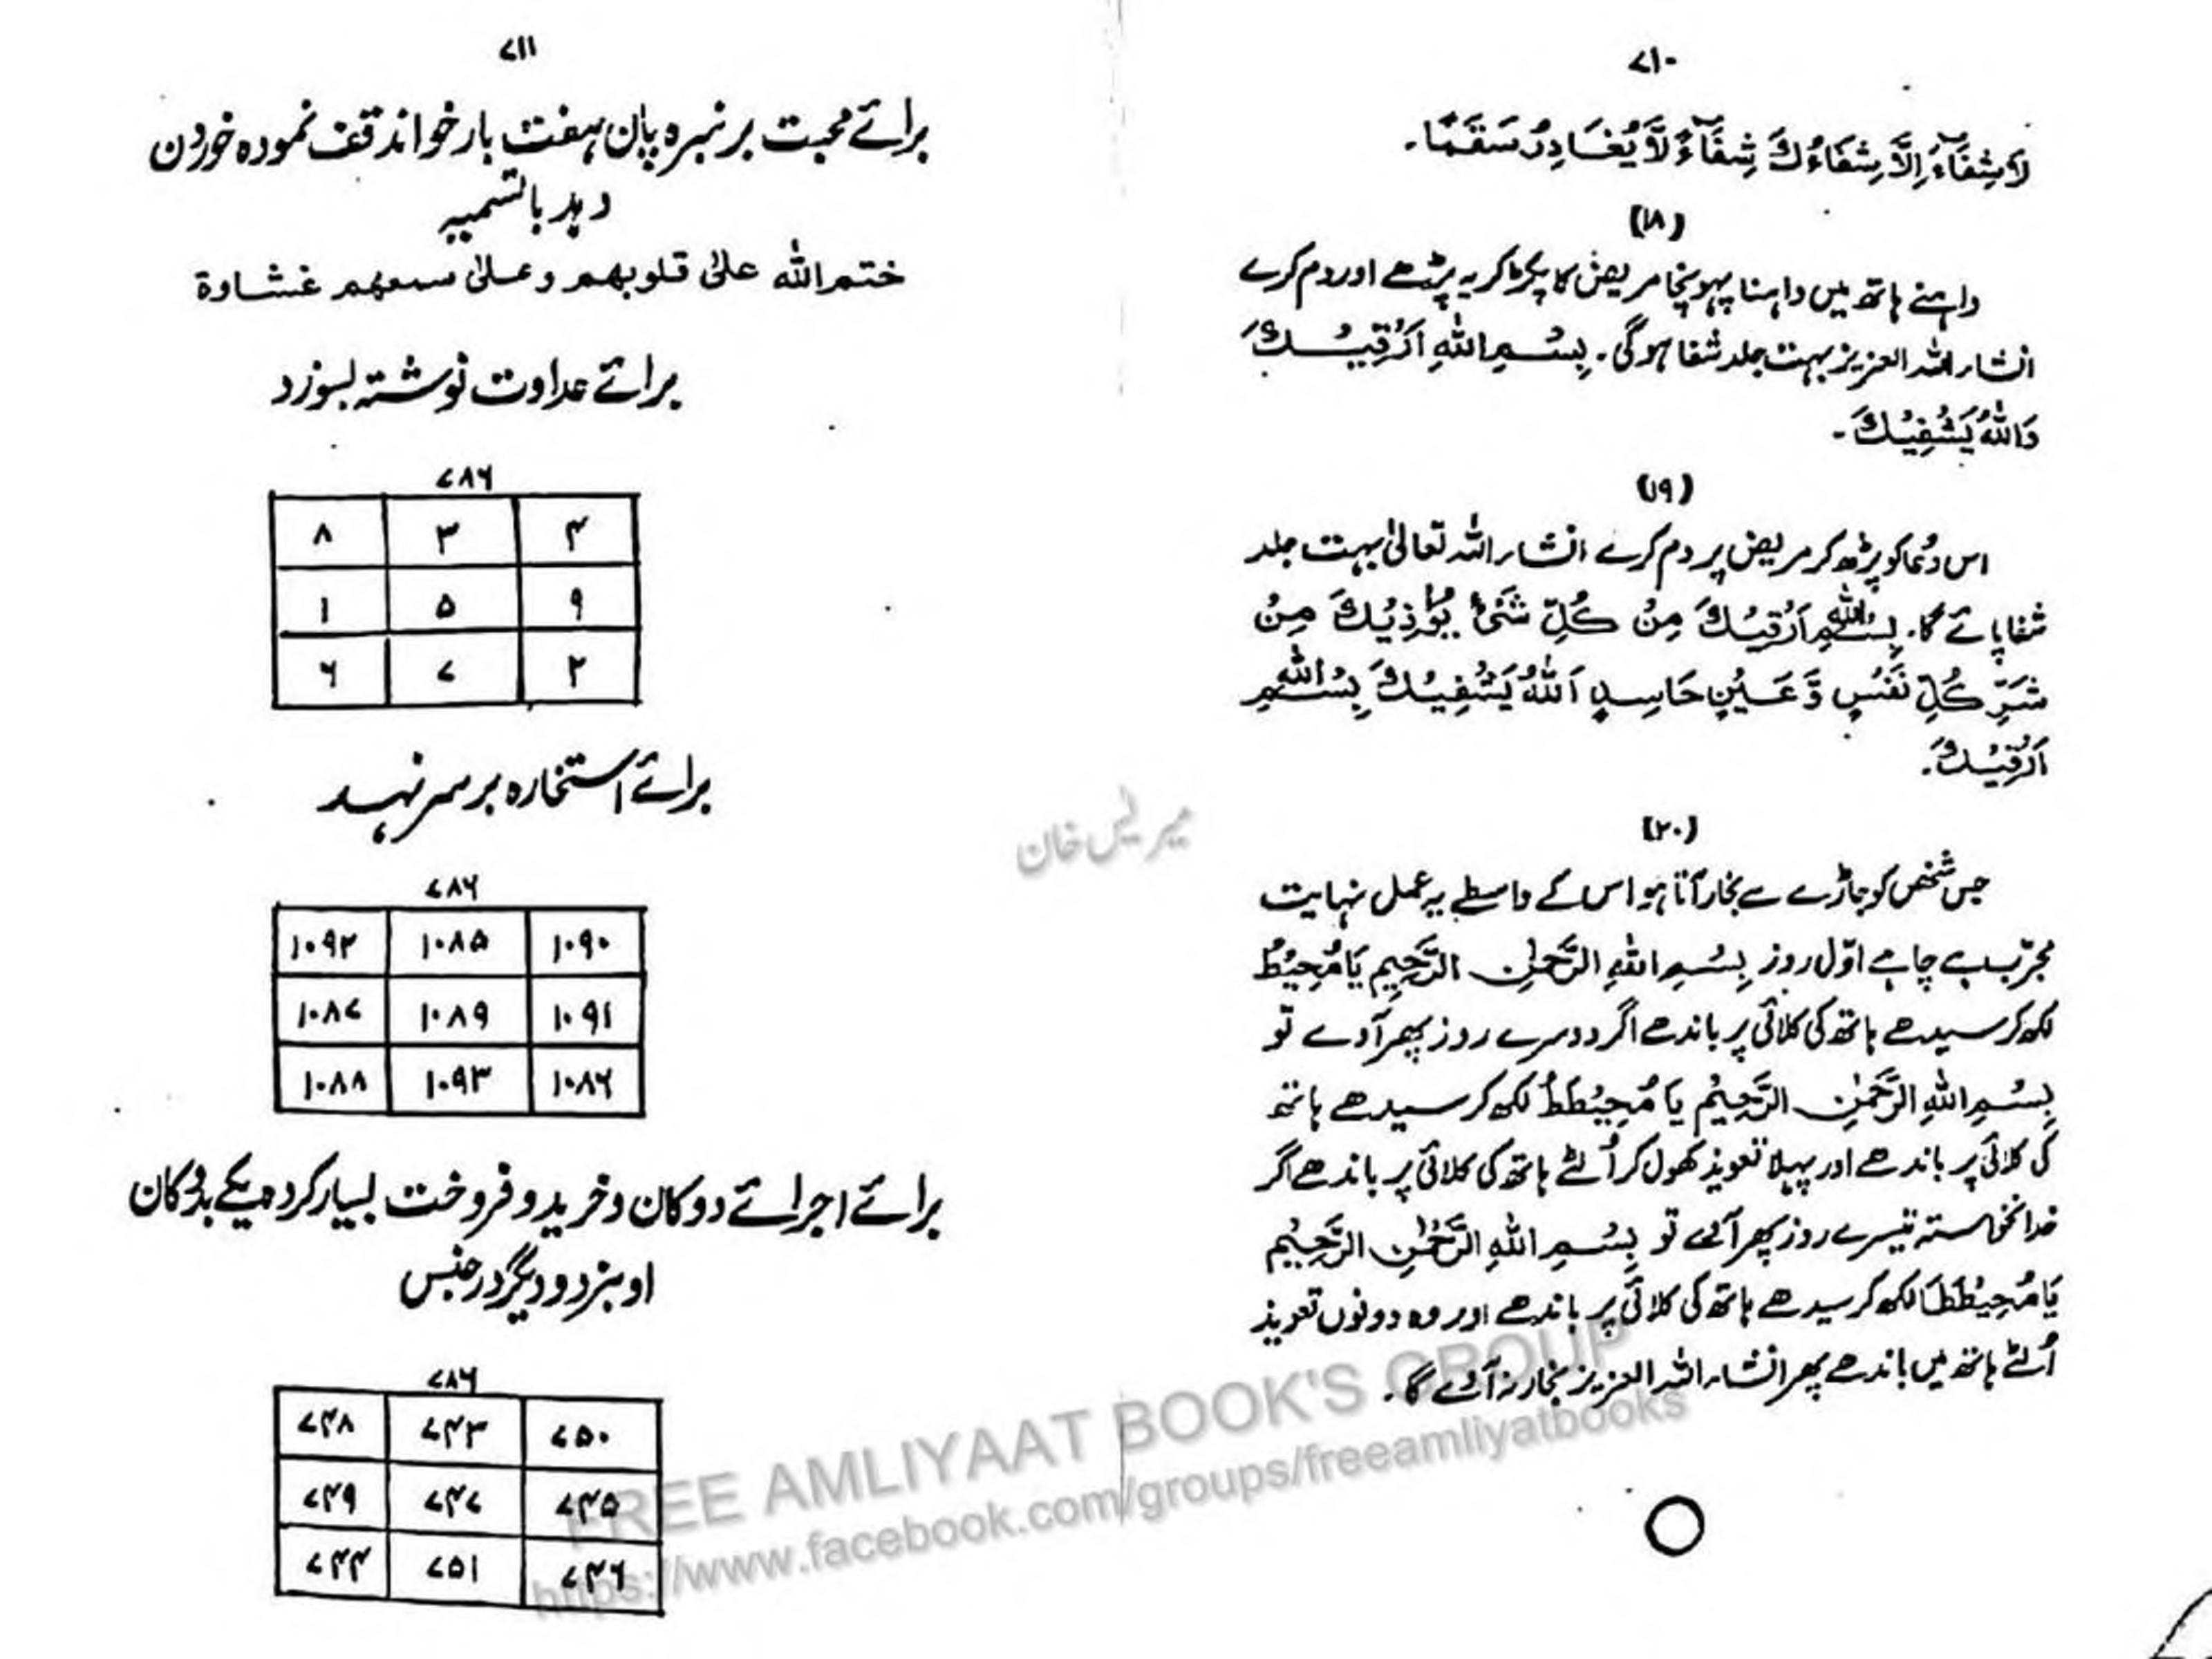 ۷۱۰
لَا شِفَآءَ اِلَّا شِفَاءُكَ شِفَآءً لَّا يُغَادِرُ سَقَمًا۔
(۱۸)
داہنے ہاتھ میں داہنا پہونچا مریض کا پکڑ کر یہ پڑھے اور دم کرے
انشاء اللہ العزیز بہت جلد شفا ہوگی۔ بِسْمِ اللهِ اَرْقِيْكَ
وَاللهُ يَشْفِيْكَ۔
(۱۹)
اس دُعا کو پڑھ کر مریض پر دم کرے انشاء اللہ تعالیٰ بہت جلد
شفا پائے گا۔ بِسْمِ اللهِ اَرْقِيْكَ مِنْ كُلِّ شَیْءٍ يُّوْذِيْكَ مِنْ
شَرِّ كُلِّ نَفْسٍ وَّ عَيْنٍ حَاسِدٍ اَللهُ يَشْفِيْكَ بِسْمِ اللهِ
اَرْقِيْكَ۔
(۲۰)
جس شخص کو جاڑے سے بخار آتا ہو اس کے واسطے یہ عمل نہایت
مجرّب ہے چاہے اوّل روز بِسْمِ اللهِ الرَّحْمٰنِ الرَّحِيْمِ يَا مُحِيْطُ
لکھ کر سیدھے ہاتھ کی کلائی پر باندھے اگر دوسرے روز پھر آوے تو
بِسْمِ اللهِ الرَّحْمٰنِ الرَّحِيْمِ يَا مُحِيْطَطُ لکھ کر سیدھے ہاتھ
کی کلائی پر باندھے اور پہلا تعویذ کھول کر اُلٹے ہاتھ کی کلائی پر باندھے اگر
خدانخواستہ تیسرے روز پھر آئے تو بِسْمِ اللهِ الرَّحْمٰنِ الرَّحِيْمِ
يَا مُحِيْطَطَطُ لکھ کر سیدھے ہاتھ کی کلائی پر باندھے اور وہ دونوں تعویذ
اُلٹے ہاتھ میں باندھے پھر انشاء اللہ العزیز بخار نہ آئے گا۔
۷۱۱
برائے محبت بر نمبرہ پان ہفت بار خواند قف نمودہ خوردن
دہد بالتسمیہ
ختم الله علیٰ قلوبهم وعلیٰ سمعهم غشاوة
برائے عداوت نوشتہ بسوزد
۷۸۶
۸ ۳ ۴
۱ ۵ ۹
۶ ۷ ۲
برائے استخارہ بر سر نہد
۷۸۶
۱۰۹۲ ۱۰۸۵ ۱۰۹۰
۱۰۸۷ ۱۰۸۹ ۱۰۹۱
۱۰۸۸ ۱۰۹۳ ۱۰۸۶
برائے اجرائے دوکان و خرید و فروخت بسیار کردہ یکے بدُکان
او بزد و دیگر در جنس
۷۸۶
۷۴۸ ۷۴۳ ۷۵۰
۷۴۹ ۷۴۷ ۷۴۵
۷۴۴ ۷۵۱ ۷۴۶
FREE AMLIYAAT BOOK'S GROUP
https://www.facebook.com/groups/freeamliyatbooks